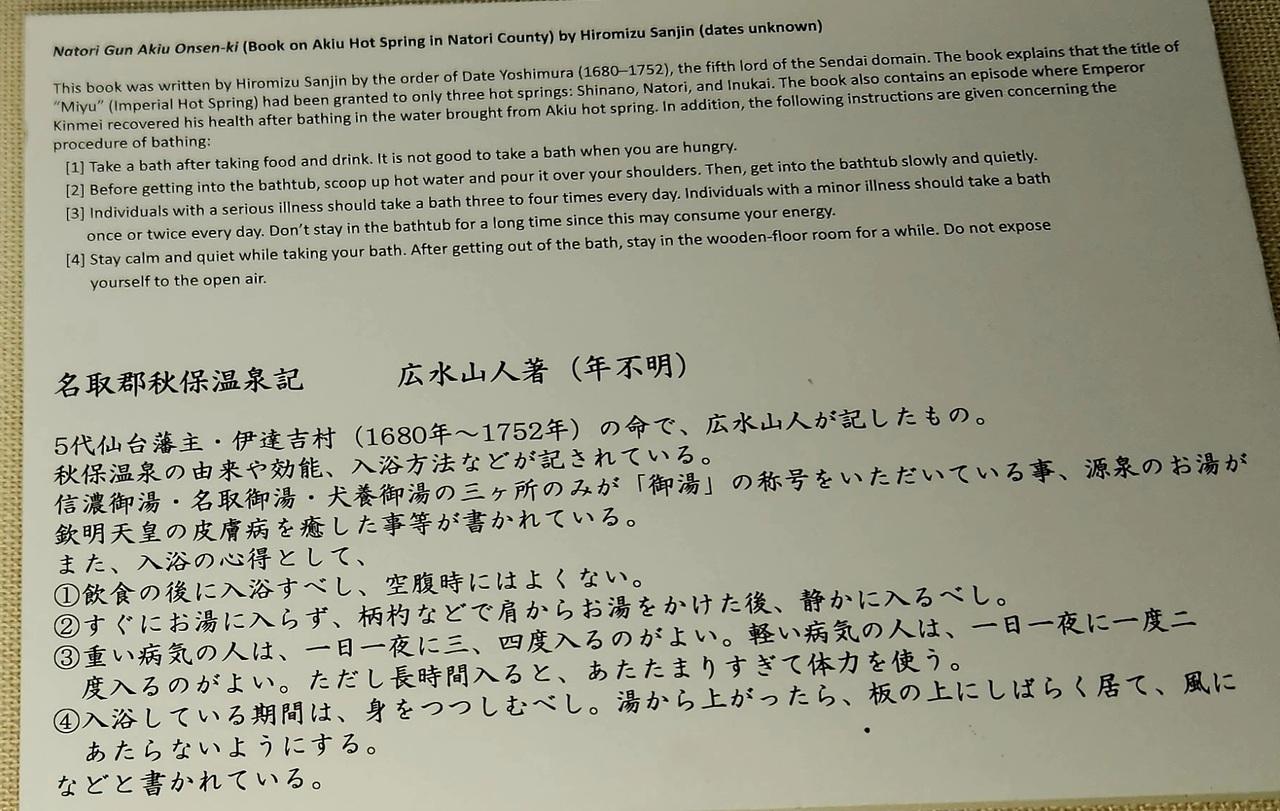 Natori Gun Akiu Onsen-ki (Book on Akiu Hot Spring in Natori County) by Hiromizu Sanjin (dates unknown)
This book was written by Hiromizu Sanjin by the order of Date Yoshimura (1680–1752), the fifth lord of the Sendai domain. The book explains that the title of
“Miyu” (Imperial Hot Spring) had been granted to only three hot springs: Shinano, Natori, and Inukai. The book also contains an episode where Emperor
Kinmei recovered his health after bathing in the water brought from Akiu hot spring. In addition, the following instructions are given concerning the
procedure of bathing:
[1] Take a bath after taking food and drink. It is not good to take a bath when you are hungry.
[2] Before getting into the bathtub, scoop up hot water and pour it over your shoulders. Then, get into the bathtub slowly and quietly.
[3] Individuals with a serious illness should take a bath three to four times every day. Individuals with a minor illness should take a bath
once or twice every day. Don’t stay in the bathtub for a long time since this may consume your energy.
[4] Stay calm and quiet while taking your bath. After getting out of the bath, stay in the wooden-floor room for a while. Do not expose
yourself to the open air.
名取郡秋保温泉記　　　広水山人著（年不明）
5代仙台藩主・伊達吉村（1680年～1752年）の命で、広水山人が記したもの。
秋保温泉の由来や効能、入浴方法などが記されている。
信濃御湯・名取御湯・犬養御湯の三ヶ所のみが「御湯」の称号をいただいている事、源泉のお湯が
欽明天皇の皮膚病を癒した事等が書かれている。
また、入浴の心得として、
①飲食の後に入浴すべし、空腹時にはよくない。
②すぐにお湯に入らず、柄杓などで肩からお湯をかけた後、静かに入るべし。
③重い病気の人は、一日一夜に三、四度入るのがよい。軽い病気の人は、一日一夜に一度二
度入るのがよい。ただし長時間入ると、あたたまりすぎて体力を使う。
④入浴している期間は、身をつつしむべし。湯から上がったら、板の上にしばらく居て、風に
あたらないようにする。
などと書かれている。